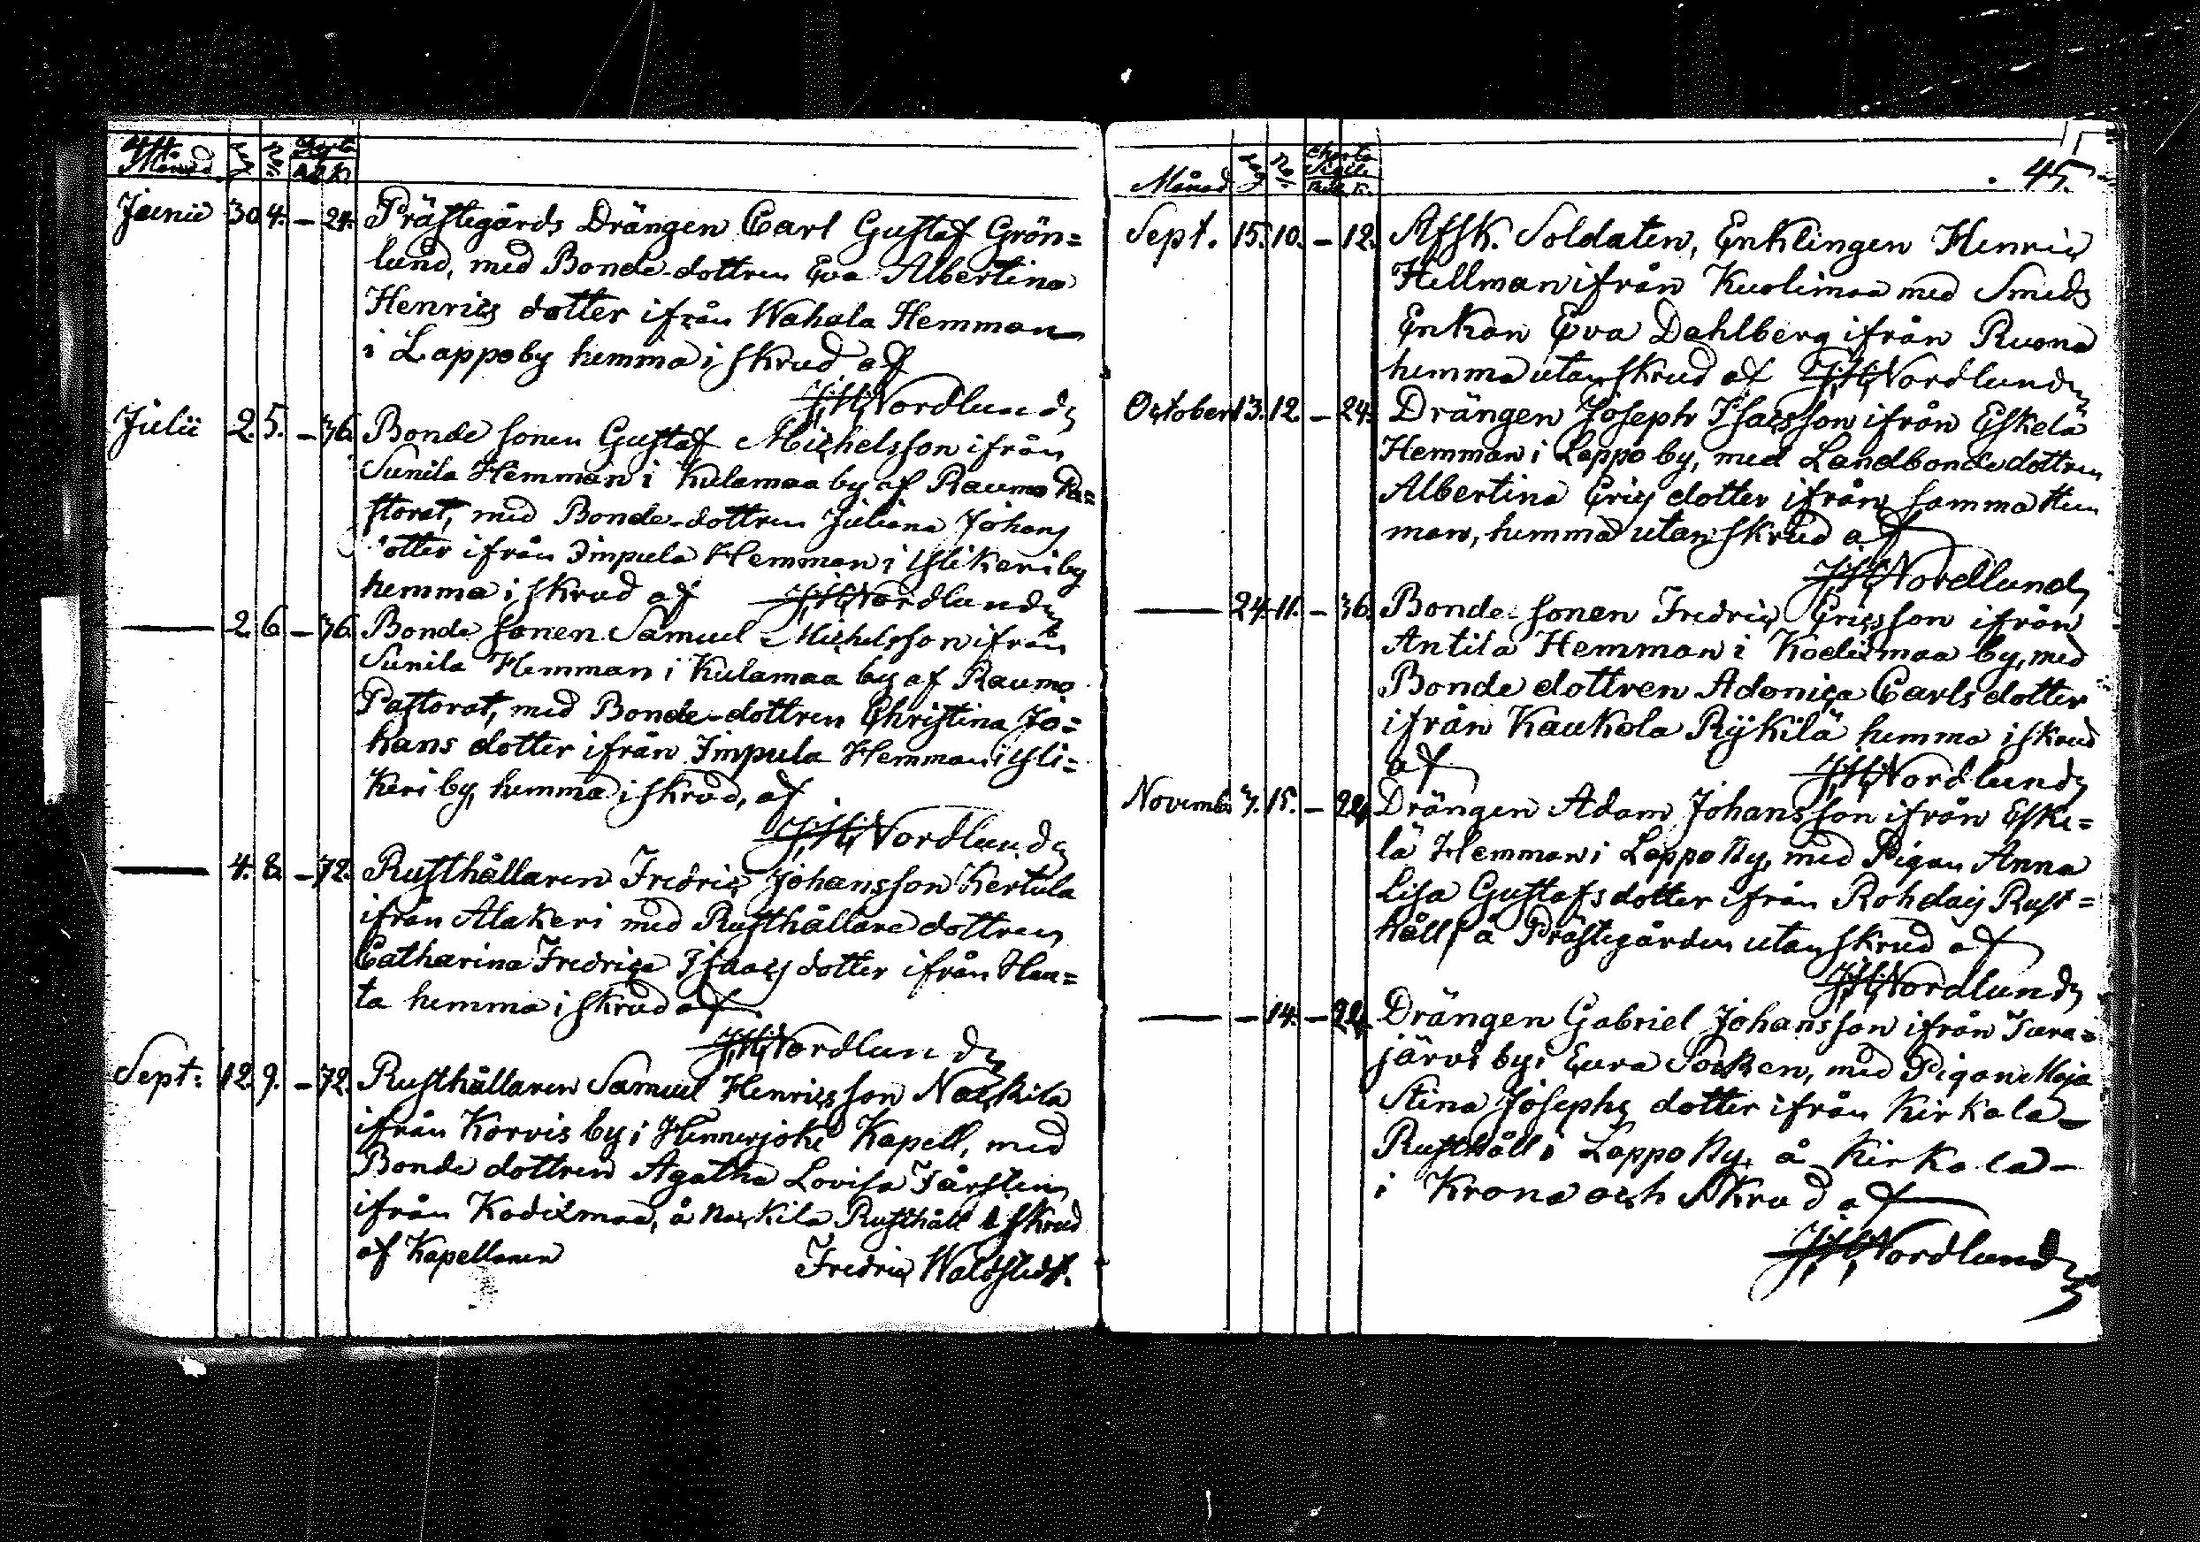 Månad
Junii 30 4. – 24. Prästegårds Drängen Carl Gustaf Grön=
lund, med Bonde-dottren Eva Albertina
Henrics dotter ifrån Wahala Hemman
i Lappo by hemma i skrud af
J,H,Nordlund,
Julii 2. 5. – 36. Bonde sonen Gustaf Michelsson ifrån
Sunila Hemman i Kulamaa by af Raumo Pa=
storat, med Bonde-dottren Juliana Johans
dotter ifrån Impula Hemman i Islikeri by
hemma i skrud af J,H,Nordlund,
— 2. 6. – 36. Bonde sonen Samuel Michelsson ifrån
Sunila Hemman i Kulamaa by af Raumo
Pastorat, med Bonde-dottren Christina Jo=
hans dotter ifrån Impula Hemman i Isli=
keri by, hemma i skrud, af
J,H,Nordlund,
— 4. 8. – 72. Rusthållaren Fredric Johansson Kertula
ifrån Alakeri med Rusthållare dottren
Catharina Fredrica Isaacs dotter ifrån Hau=
ta hemma i skrud af
J,H,Nordlund,
Sept: 12. 9. – 72. Rusthållaren Samuel Henricsson Nackila
ifrån Korvis by i Hinnerjoki Kapell, med
Bonde dottren Agatha Lovisa Tårsten,
ifrån Kodixmaa, å Nackila Rusthåll i skrud
af Kapellanen Fredric Waldstedt.
Månad Charta Sigill. 45.
Sept. 15. 10. – 12. Afsk. Soldaten, Enklingen Henric
Hellman ifrån Kuolimaa med Smeds
Enkan Eva Dahlberg ifrån Ruona
hemma utan skrud af J,H,Nordlund,
October 13. 12. – 24. Drängen Joseph Isacsson ifrån Eskelä
Hemman i Lappo by, med Landbonde dottren
Albertina Erics dotter ifrån samma Hem
man, hemma utan skrud af
J,H,Nordlund,
— 24. 11. – 36. Bonde sonen Fredric Ericsson ifrån
Antila Hemman i Kodixmaa by, med
Bonde dottren Adonica Carls dotter
ifrån Kaukola Rÿkilä hemma i skrud
af J,H,Nordlund,
Novemb. 7. 15. – 24. Drängen Adam Johansson ifrån Eske=
lä Hemman i Lappo By, med Pigan Anna
Lisa Gustafs dotter ifrån Rohdais Rust=
håll, å Prästegården utan skrud af
J,H,Nordlund,
— – 14. – 24. Drängen Gabriel Johansson ifrån Tura=
järvi by i Eura Socken, med Pigan Maja
Stina Josephs dotter ifrån Kirkola
Rusthåll i Lappo By, å Kirkola –
i Krona och Skrud af
J,H,Nordlund,